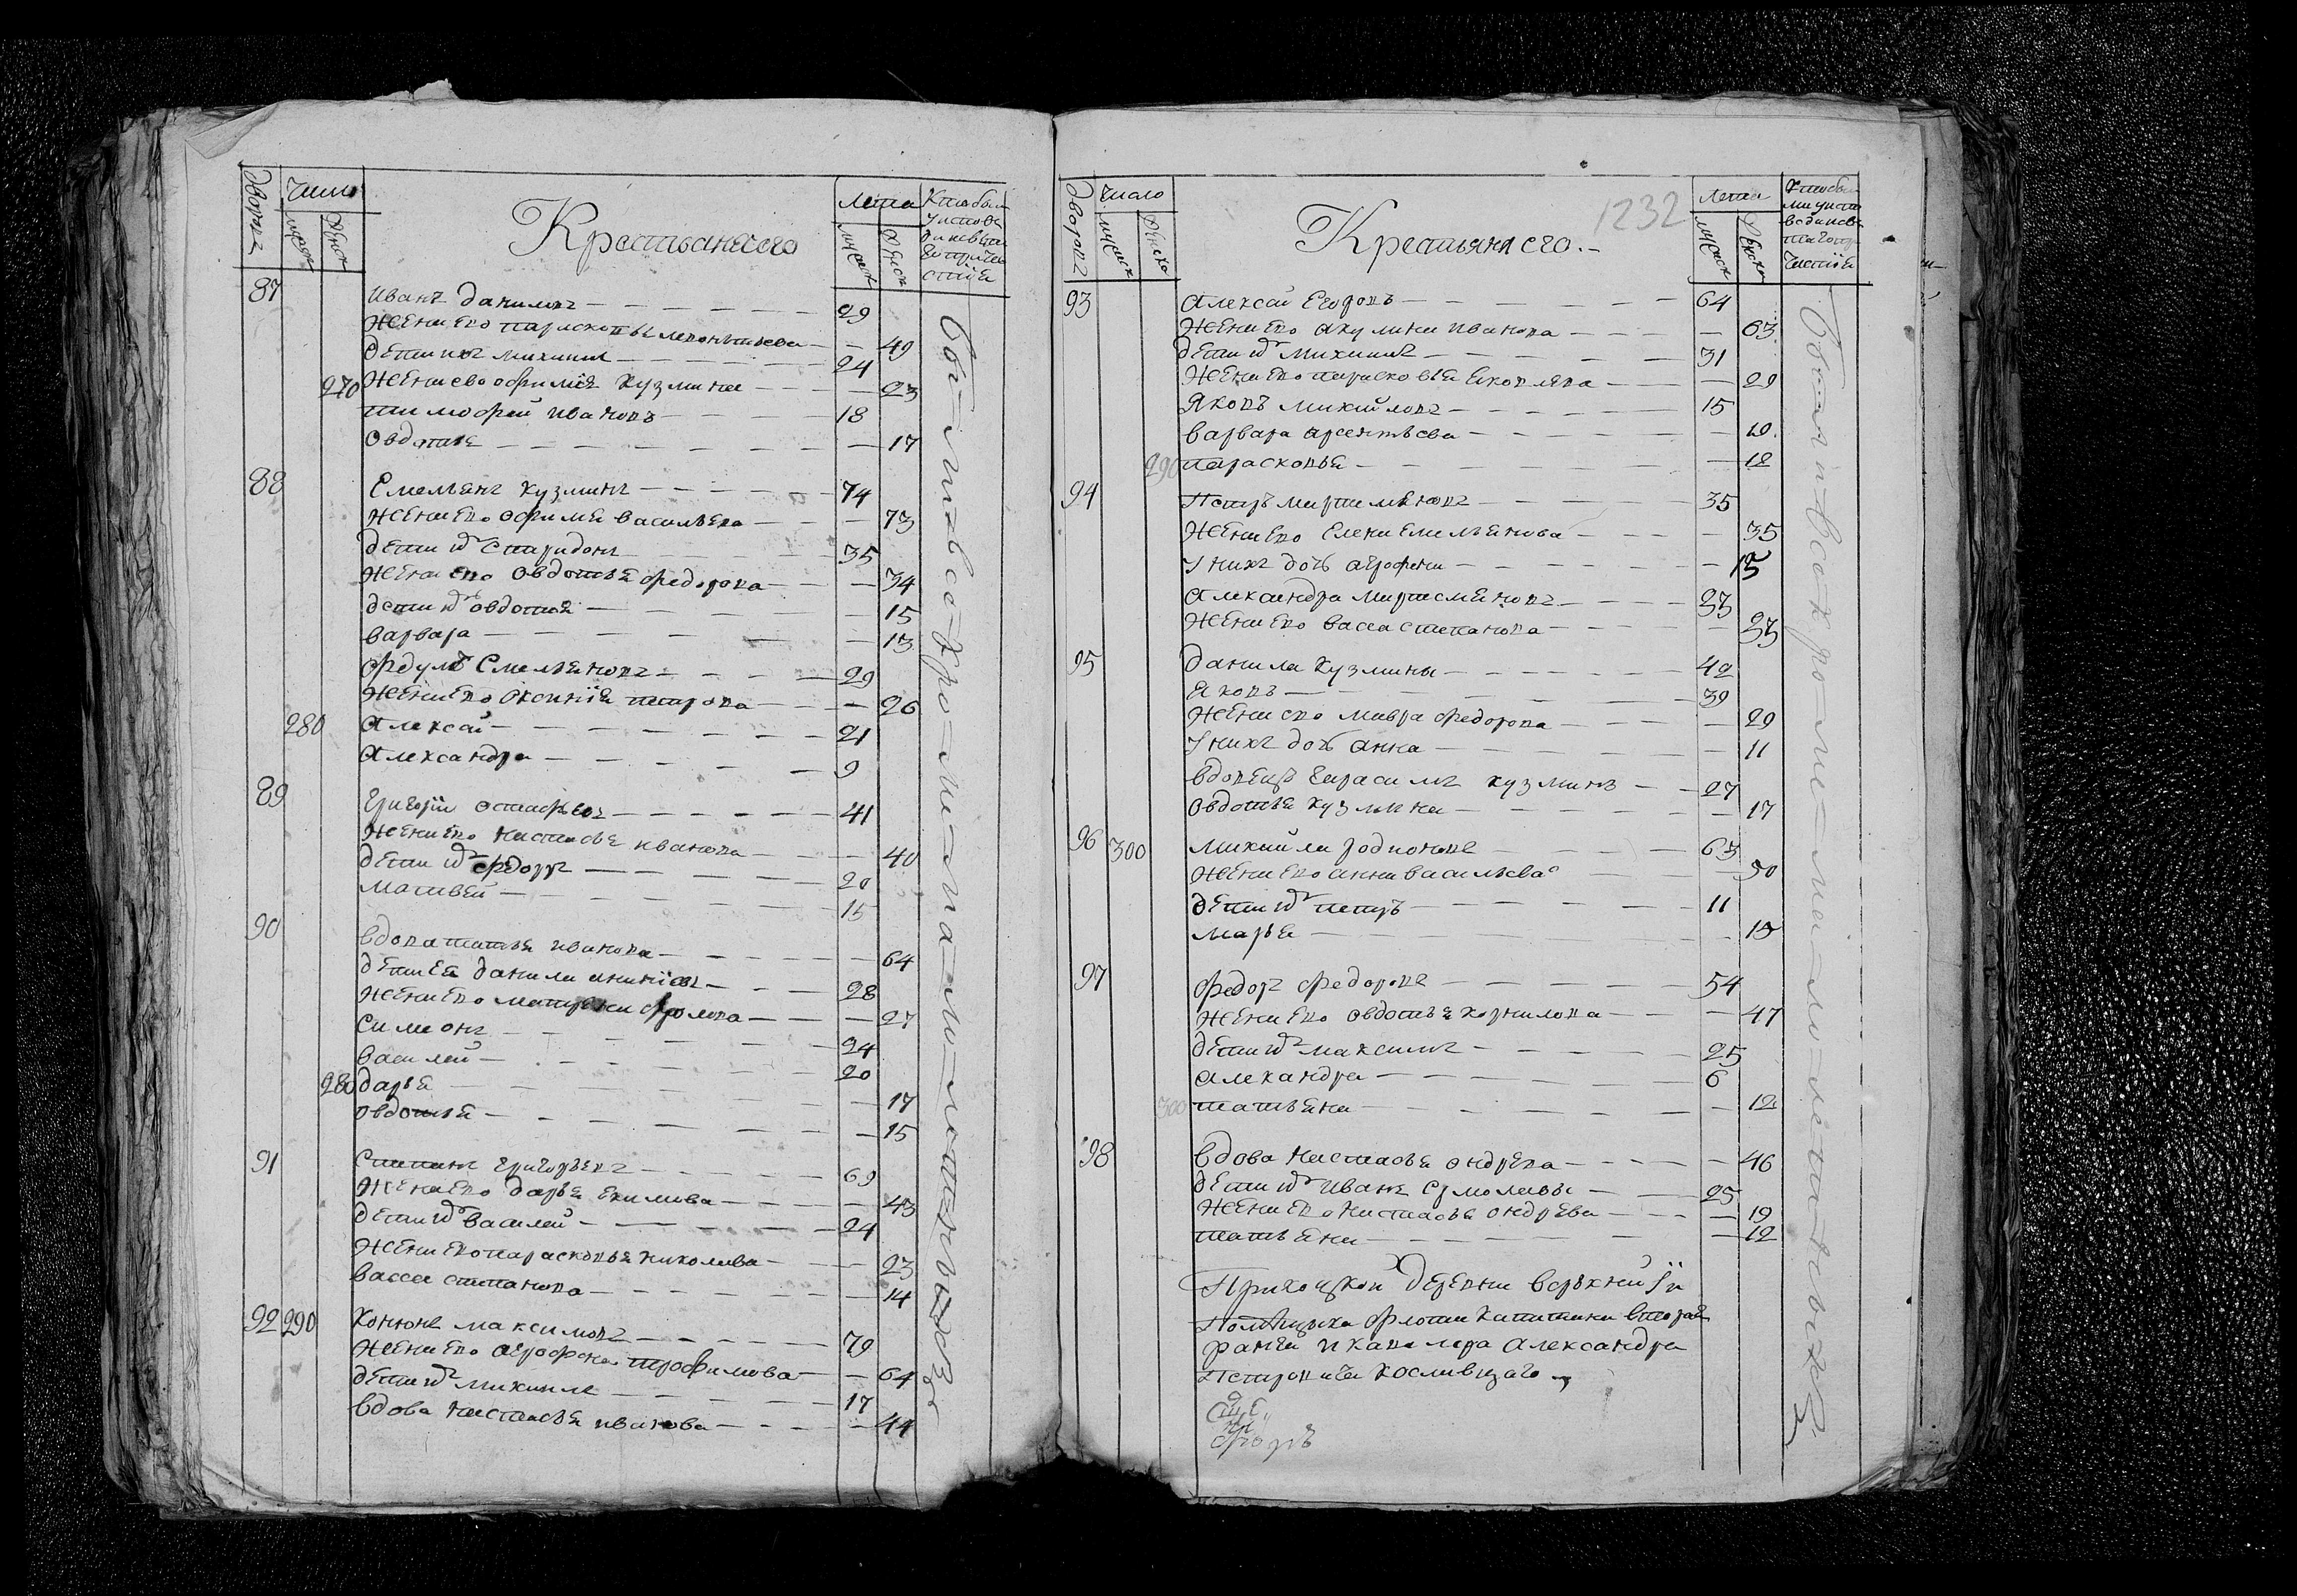 дворовъ
Число
мужеск
женск
Крестьяня его
Лета
мужеск
женск
Кто был
у испове
ди и свята
го приче
стїя
87 Иванъ Даниловъ — 29
жена ево Парасковья Леонтьева — 49
дети ихъ Михаила — 24
270 жена ево Офимїя Кузмина — 23
Тимофей Ивановъ — 18
Овдотья — 17
88 Емельянъ Кузминъ — 74
жена ево Офимья Васильева — 73
дети их Спиридонъ — 35
жена ево Овдотья Федорова — 34
дети их Овдотья — 15
Варвара — 13
Федулъ Емельяновъ — 29
жена ево Оксинїя Петрова — 26
280 Алексей — 21
Александра — 9
89 Григорїи Остафьевъ — 41
жена ево Настасья Иванова — 40
дети их Федоръ — 20
Матвей — 15
90 Вдова Татья Иванова — 64
дети ея Данила Ананїевъ — 28
жена ево Матрена Фролова — 27
Симионъ — 24
Василей — 20
280 Дарья — 17
Овдотья — 15
91 Степанъ Григорьевъ — 69
жена ево Дарья Екимова — 43
дети их Василей — 24
жена ево Парасковья Николаева — 23
Васса Степанова — 14
92 290 Кононъ Максимовъ — 79
жена ево Агрофена Трофимова — 64
дети их Михаила — 17
Вдова Настасья Иванова — 44
дворовъ
Число
мужеск
женска
Крестьяня его.
1232
Лета
мужеск
женска
Кто был
93 Алексей Егоровъ — 64
жена ево Акулина Иванова — 63
дети их Михаила — 31
жена ево Парасковья Яковлева — 29
Яковъ Михайловъ — 15
Варвара Арсентьева — 10.
290 Парасковья — 12
94 Петръ Мартемьяновъ — 35
жена ево Елена Емельянова — 35
у нихъ дочь Агрофена — 15
Александра Мартемьяновъ — 33
жена ево Васса Степанова — 33
95 Данила Кузмины — 42
Яковъ — 39
жена ево Мавра Федорова — 29
у нихъ дочь Анна — 11
вдовецъ Герасимъ Кузминъ — 27
Овдотья Кузмина — 17
96 300 Михайла Родионовъ — 63
жена ево Анна Васильева — 50
дети их Петръ — 11
Марья — 15
97 Федоръ Федоровъ — 54
жена ево Овдотья Корнилова — 47
дети их Максимъ — 25
Алекандра — 6
300 Татьяна — 12
98 Вдова Настасья Ондрева — 46
дети их Иванъ Ермолаевы — 25
жена ево Настасья Ондрева — 19
Татьяна — 12
Приходцкой деревни Верхней
Помещика Флота Капитана второва
ранга и кавалера Александра
Петровича Кославцаго